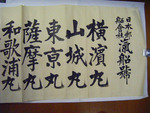 日本郵船会社
滊船號
横濱丸
山城丸
東京丸
薩摩丸
和歌浦丸